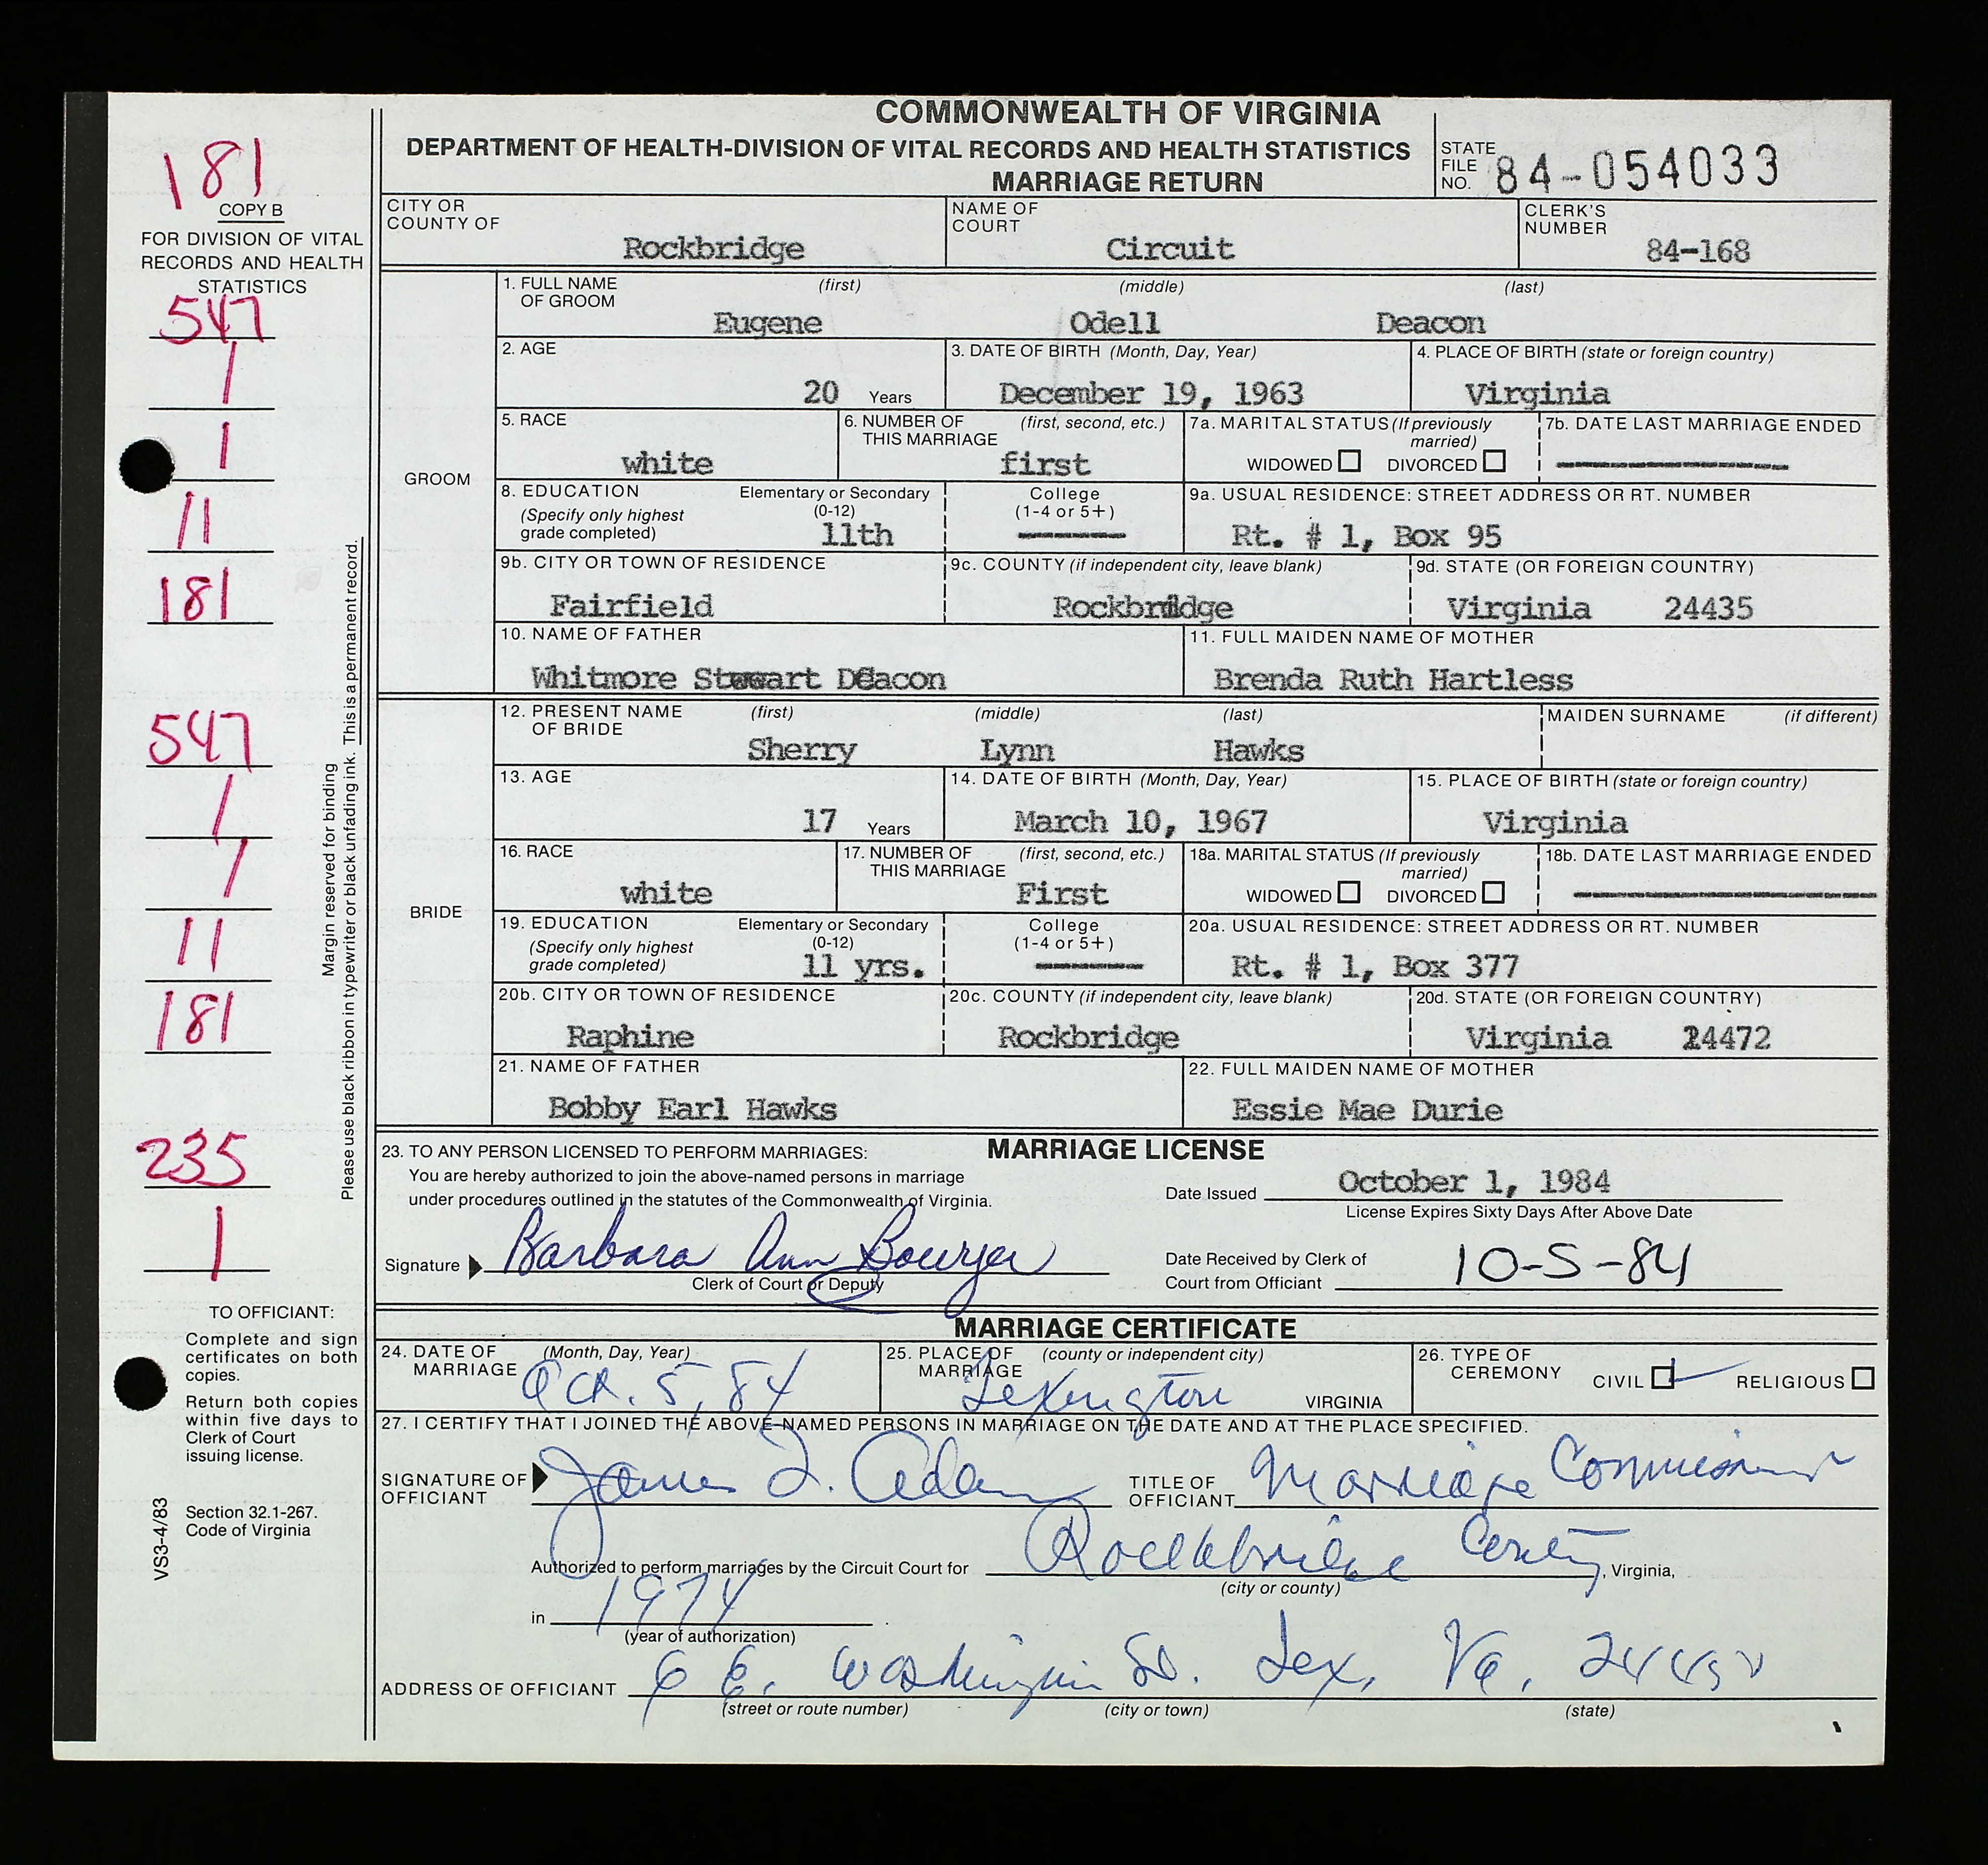 COMMONWEALTH OF VIRGINIA
DEPARTMENT OF HEALTH-DIVISION OF VITAL RECORDS AND HEALTH STATISTICS
MARRIAGE RETURN
STATE FILE NO. 84-054033
181
COPY B
FOR DIVISION OF VITAL
RECORDS AND HEALTH
STATISTICS
547
1
1
11
181
547
1
7
11
181
235
1
Margin reserved for binding
Please use black ribbon in typewriter or black unfading ink. This is a permanent record.
TO OFFICIANT:
Complete and sign
certificates on both
copies.
Return both copies
within five days to
Clerk of Court
issuing license.
Section 32.1-267.
Code of Virginia
VS3-4/83
CITY OR COUNTY OF Rockbridge
NAME OF COURT Circuit
CLERK'S NUMBER 84-168
GROOM
1. FULL NAME OF GROOM (first) (middle) (last)
Eugene Odell Deacon
2. AGE 20 Years
3. DATE OF BIRTH (Month, Day, Year) December 19, 1963
4. PLACE OF BIRTH (state or foreign country) Virginia
5. RACE white
6. NUMBER OF THIS MARRIAGE (first, second, etc.) first
7a. MARITAL STATUS (If previously married) WIDOWED DIVORCED
7b. DATE LAST MARRIAGE ENDED
8. EDUCATION (Specify only highest grade completed) Elementary or Secondary (0-12) 11th
College (1-4 or 5+)
9a. USUAL RESIDENCE: STREET ADDRESS OR RT. NUMBER Rt. # 1, Box 95
9b. CITY OR TOWN OF RESIDENCE Fairfield
9c. COUNTY (if independent city, leave blank) Rockbridge
9d. STATE (OR FOREIGN COUNTRY) Virginia 24435
10. NAME OF FATHER Whitmore Stewart Deacon
11. FULL MAIDEN NAME OF MOTHER Brenda Ruth Hartless
BRIDE
12. PRESENT NAME OF BRIDE (first) (middle) (last) MAIDEN SURNAME (if different)
Sherry Lynn Hawks
13. AGE 17 Years
14. DATE OF BIRTH (Month, Day, Year) March 10, 1967
15. PLACE OF BIRTH (state or foreign country) Virginia
16. RACE white
17. NUMBER OF THIS MARRIAGE (first, second, etc.) First
18a. MARITAL STATUS (If previously married) WIDOWED DIVORCED
18b. DATE LAST MARRIAGE ENDED
19. EDUCATION (Specify only highest grade completed) Elementary or Secondary (0-12) 11 yrs.
College (1-4 or 5+)
20a. USUAL RESIDENCE: STREET ADDRESS OR RT. NUMBER Rt. # 1, Box 377
20b. CITY OR TOWN OF RESIDENCE Raphine
20c. COUNTY (if independent city, leave blank) Rockbridge
20d. STATE (OR FOREIGN COUNTRY) Virginia 24472
21. NAME OF FATHER Bobby Earl Hawks
22. FULL MAIDEN NAME OF MOTHER Essie Mae Durie
MARRIAGE LICENSE
23. TO ANY PERSON LICENSED TO PERFORM MARRIAGES:
You are hereby authorized to join the above-named persons in marriage
under procedures outlined in the statutes of the Commonwealth of Virginia.
Date Issued October 1, 1984
License Expires Sixty Days After Above Date
Signature Barbara Ann
Clerk of Court or Deputy
Date Received by Clerk of
Court from Officiant 10-5-84
MARRIAGE CERTIFICATE
24. DATE OF MARRIAGE (Month, Day, Year) Oct. 5, 84
25. PLACE OF MARRIAGE (county or independent city) Lexington VIRGINIA
26. TYPE OF CEREMONY CIVIL RELIGIOUS
27. I CERTIFY THAT I JOINED THE ABOVE-NAMED PERSONS IN MARRIAGE ON THE DATE AND AT THE PLACE SPECIFIED.
SIGNATURE OF OFFICIANT James
TITLE OF OFFICIANT Marriage Commissioner
Authorized to perform marriages by the Circuit Court for Rockbridge County, Virginia,
(city or county)
in 1974
(year of authorization)
ADDRESS OF OFFICIANT 6 E. Washington St. Lex, Va. 24450
(street or route number) (city or town) (state)